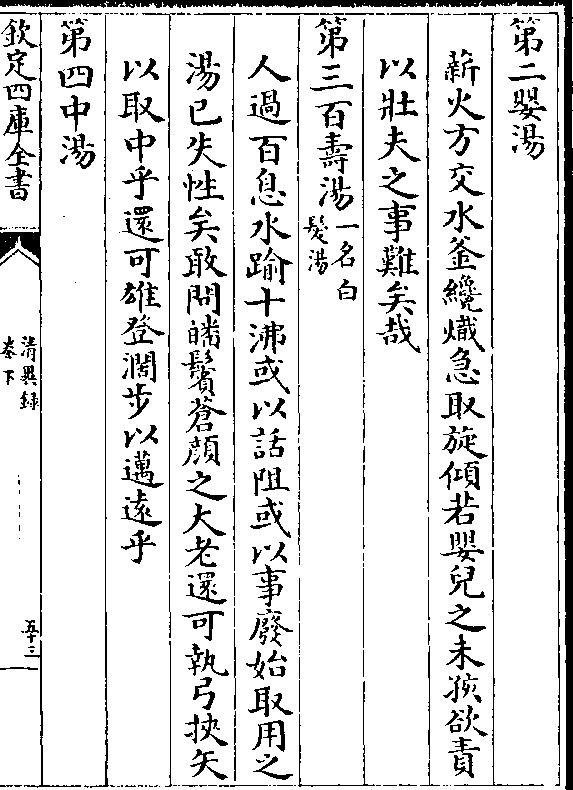 第二嬰湯
薪火方交水釜纔熾急取旋傾若嬰兒之未孩欲責
以壯夫之事難矣哉
第三百壽湯一名白
髮湯
人過百息水踰十沸或以話阻或以事廢始取用之
湯已失性矣敢問皤鬢蒼顔之大老還可執弓挾矢
以取中乎還可雄登濶步以邁遠乎
第四中湯
欽定四庫全書
清異錄
卷下
五十三